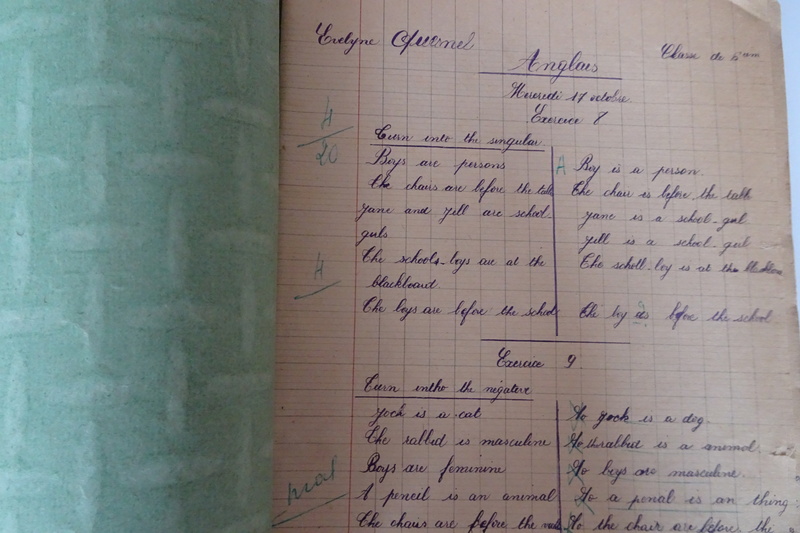 Evelyne Quesnel
Classe de 6ème
Anglais
Mercredi 17 octobre
Exercice 8
4/20
Turn into the singular.
Boys are persons
A Boy is a person.
The chairs are before the table
The chair is before the table
Jane and Jill are school-
girls
Jane is a school-girl
Jill is a school-girl
The schools-boys are at the
blackboard.
The scholl-boy is at the blackboard
4
The boys are before the school
The boy is before the school.
Exercice 9.
Turn intho the negative
Jock is a cat
No Jock is a dog.
The rabbid is masculine
No the rabbid is a animal.
Boys are feminine
No boys are masculine.
mal
A pencil is an animal
No a pencil is an thing
The chairs are before the
No the chair are before the